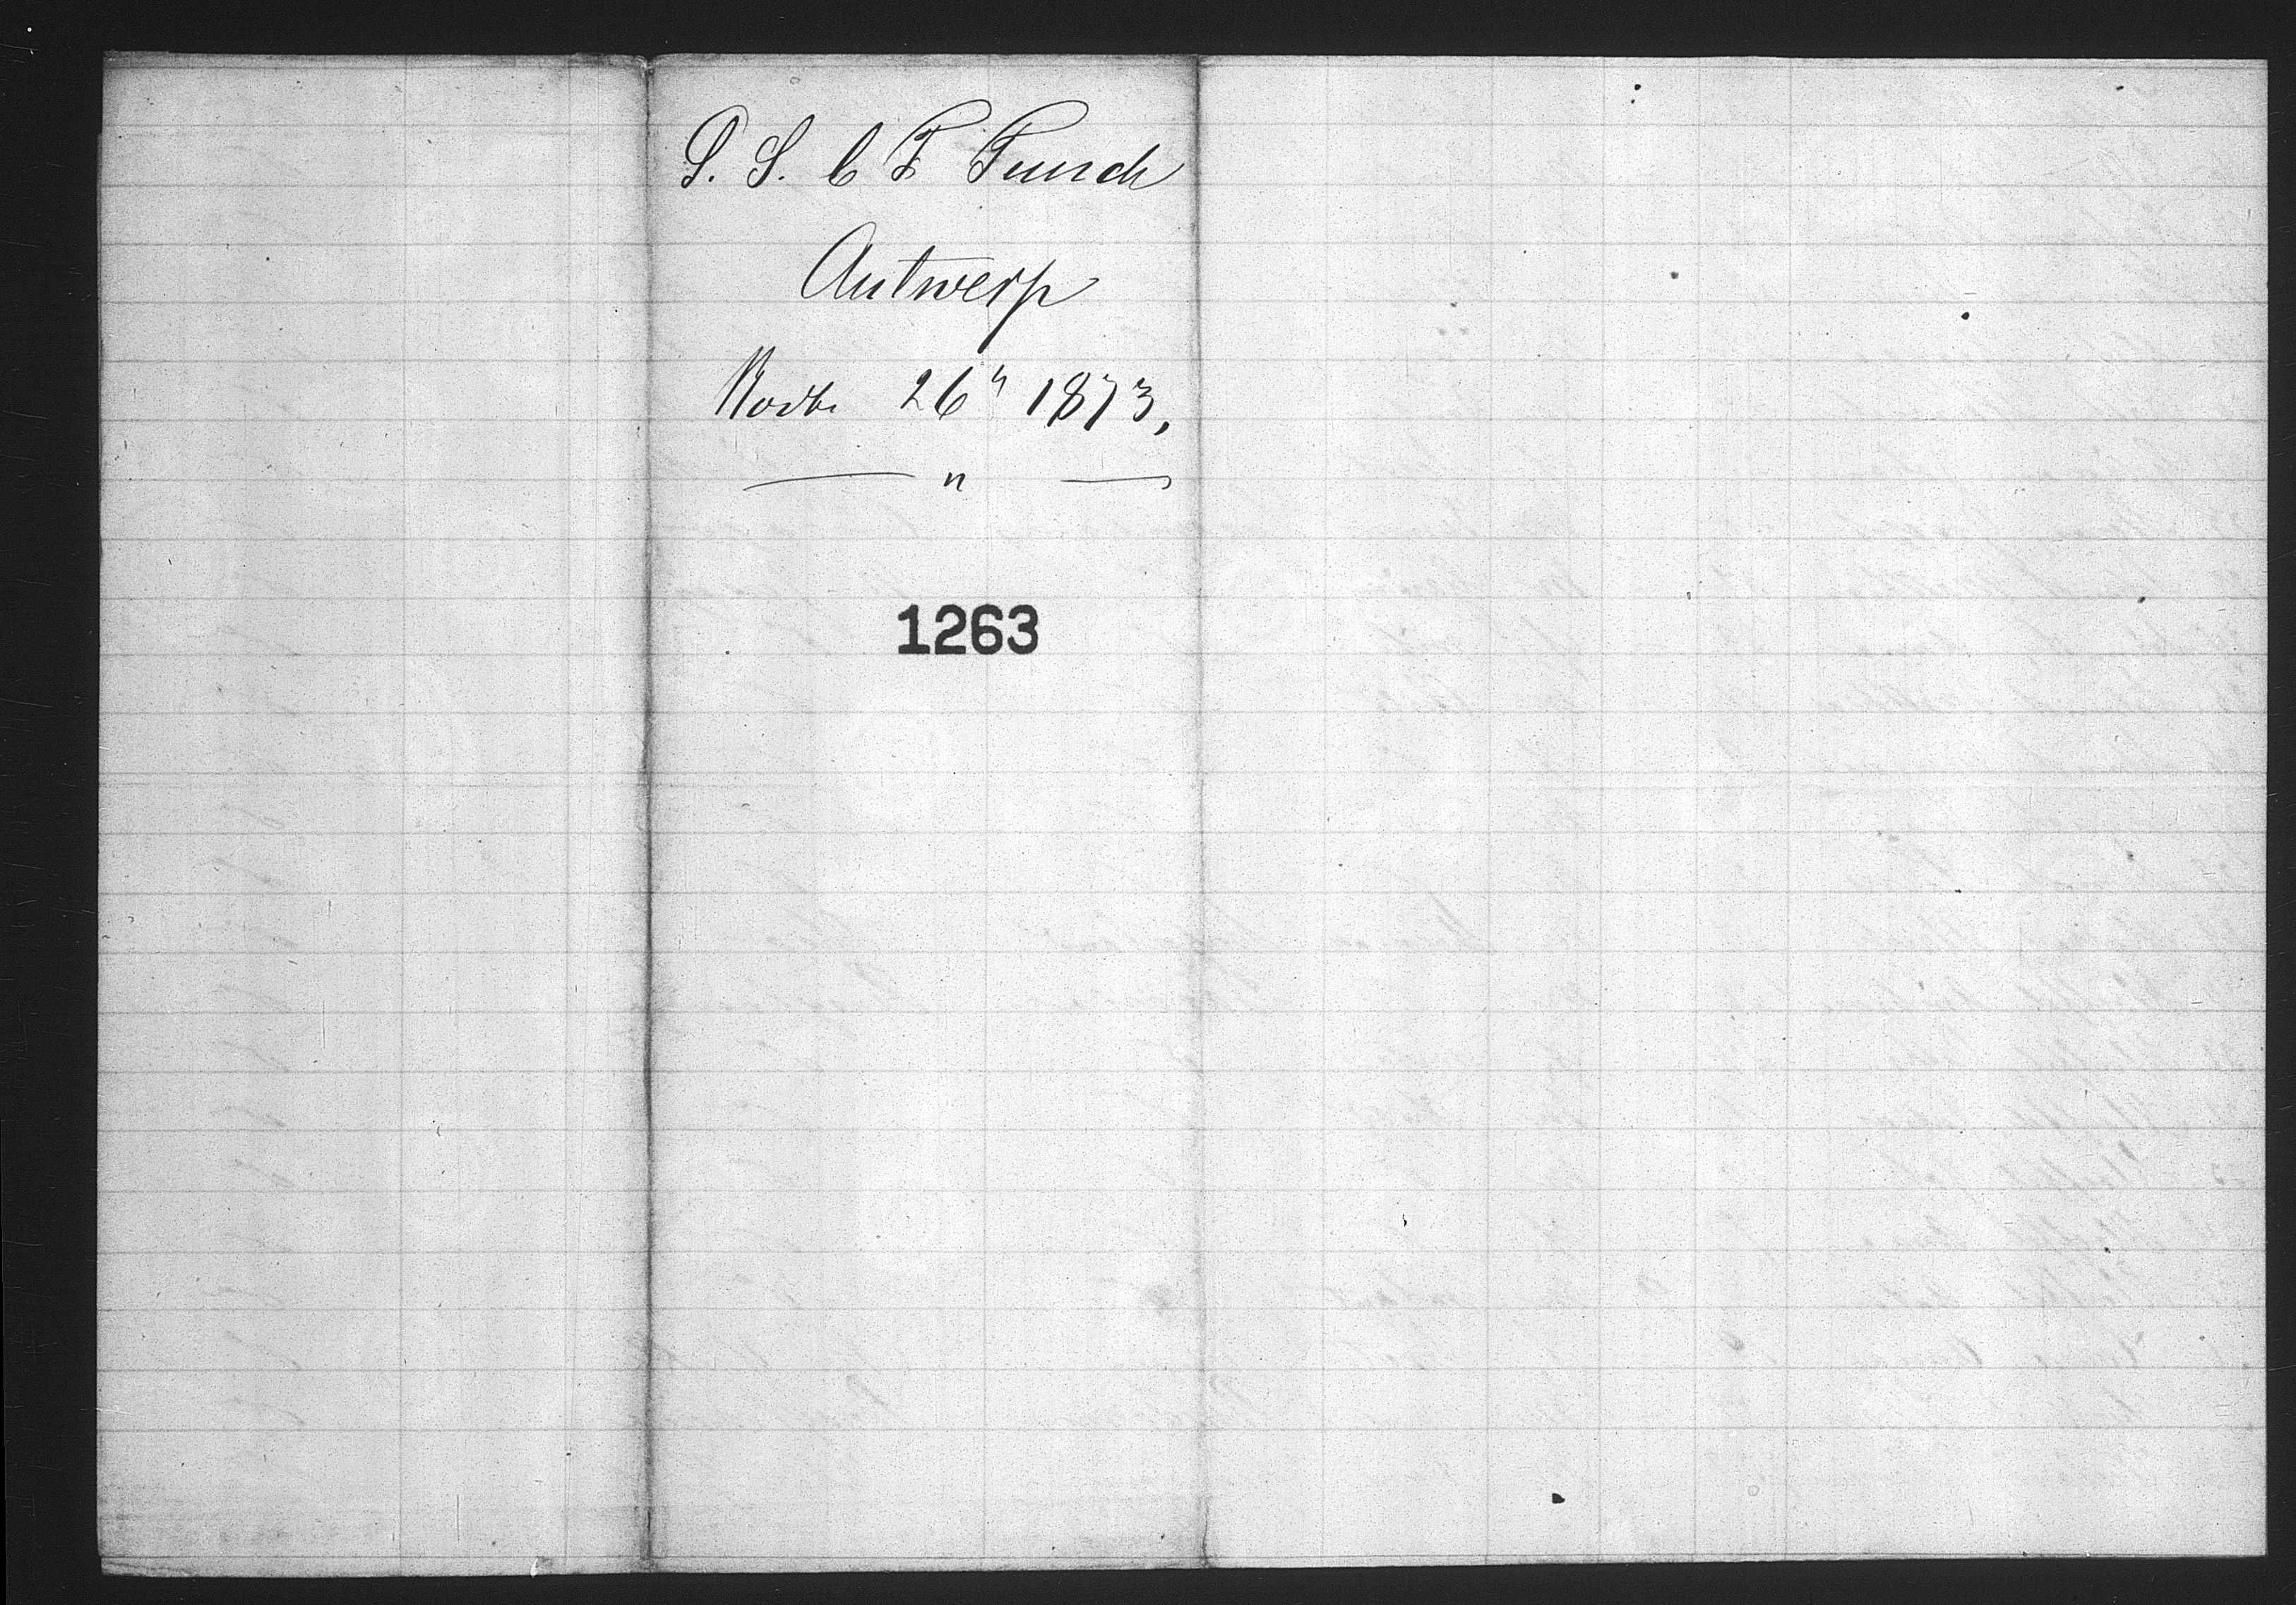 S. S. C F Funch
Antwerp
Novbr 26" 1873,
— " —
1263